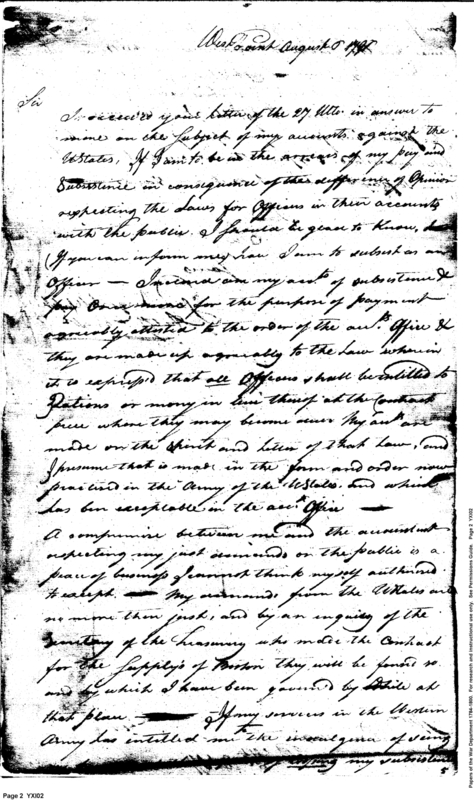 West Point August 6 179
Sir
I received your letter of the 27 Ulto. in answer to
mine on the Subject of my accounts against the
UStates, If I am to be in the arrears of my pay and
Subsistence in consequence of the difference of Opinion
respecting the Laws for Officers in their accounts
with the public. I should be glad to know,
(If you can inform me) how I am to subsist as an
Officer — I my acts. of subsistence &
pay once more for the purpose of payment
agreeably attested to the order of the acts. Office &
they are made up agreeably to the Law wherein
it is express'd that all Officers shall be entitled to
Rations or money in lieu thereof at the Contract
price where they may become due My acts. are
made on the spirit and letter of that Law, and
I presume that is made in the form and order now
practised in the Army of the UStates, and which
has ben exceptable in the acts. Office —
A compromise between me and the accountant
respecting my just demands on the public is a
peace of business I cannot think myself authorised
to except. — My demands from the UStates are
no more then just, and by an enquiry of the
Secretary of the Treasury who made the Contract
for the Supply's of Boston they will be found so
and by which I have been governed by while at
that place — If my services in the Western
Army has intitled me to the indulgence of being
my subsistence
5
Page 2 YXI02
Papers of the War Department 1784-1800. For research and instructional use only. See Permissions Guide. Page 2 YXI02